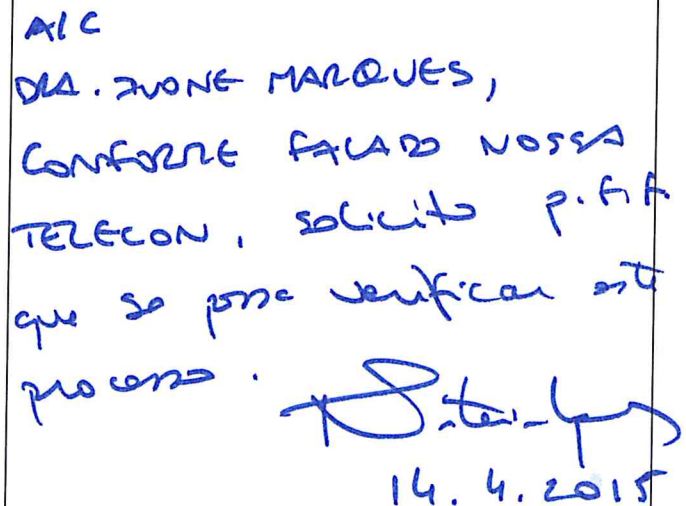 A/C
DRA. IVONE MARQUES,
CONFORME FALADO NOSSA
TELECON, solicito p.f.f.
que se possa verificar este
processo.
14.4.2015